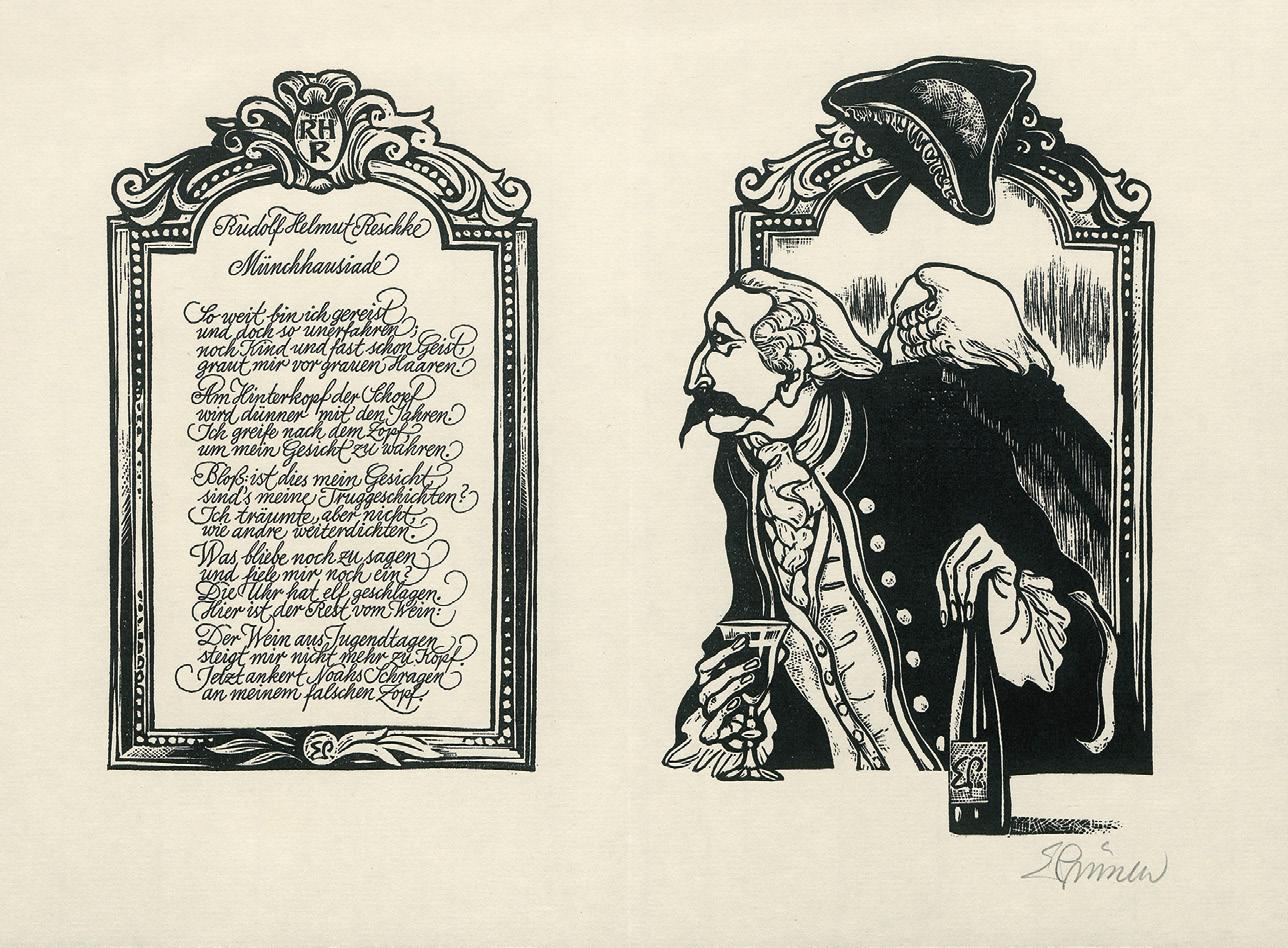 RH
R
Rudolf Helmut Reschke
Münchhausiade
So weit bin ich gereist
und doch so unerfahren;
noch Kind und fast schon Geist,
graut mir vor grauen Haaren.
Am Hinterkopf der Schopf
wird dünner mit den Jahren.
Ich greife nach dem Zopf,
um mein Gesicht zu wahren.
Bloß: ist dies mein Gesicht,
sind's meine Truggeschichten?
Ich träumte, aber nicht,
wie andre weiterdichten.
Was bliebe noch zu sagen
und fiele mir noch ein?
Die Uhr hat elf geschlagen.
Hier ist der Rest vom Wein:
Der Wein aus Jugendtagen
steigt mir nicht mehr zu Kopf.
Jetzt ankert Noahs Schragen
an meinem falschen Zopf.